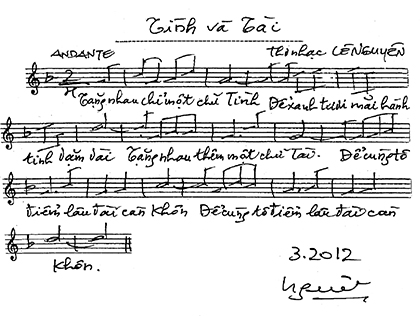 Tình và Tài
ANDANTE
Thơ nhạc LÊ NGUYÊN
Tặng nhau chỉ một chữ Tình Để xanh tươi mãi hành
tinh đằm đài Tặng nhau thêm một chữ Tài. Để cùng tô
điểm lâu đài càn khôn Để cùng tô điểm lâu đài càn
khôn.
3.2012